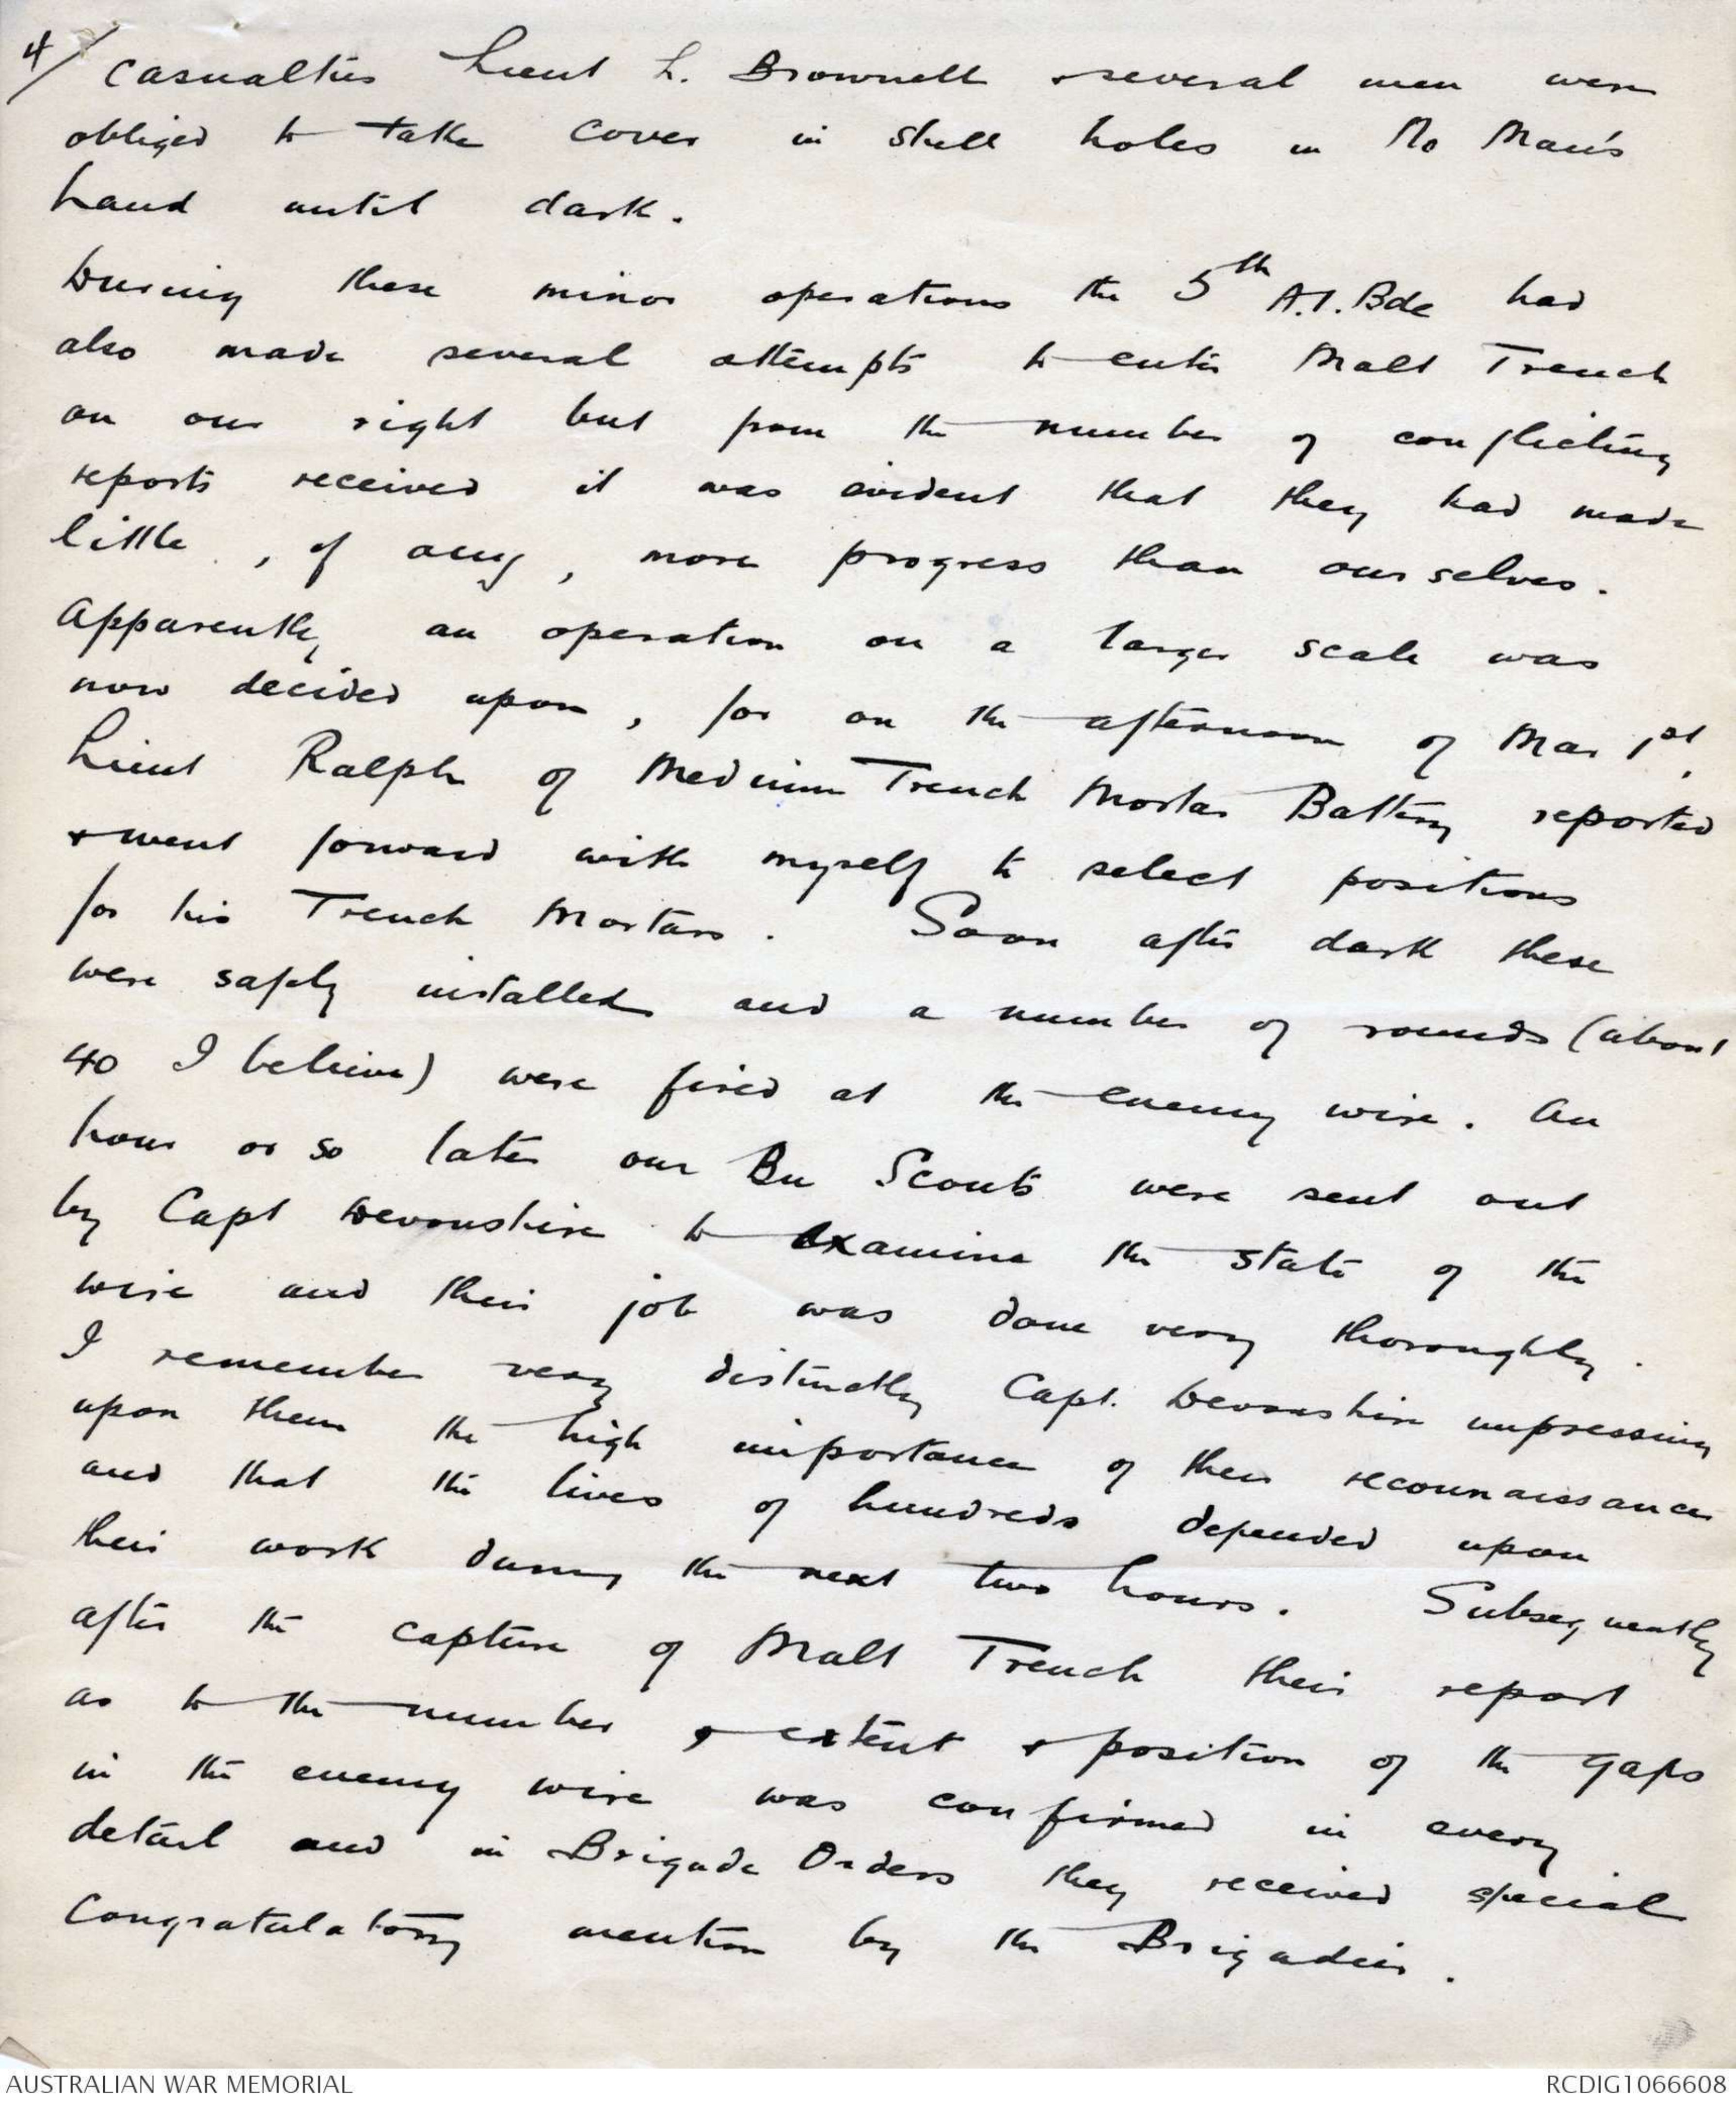 4/ casualties Lieut L. Brownell & several men were
obliged to take cover in shell holes in No Man's
Land until dark.
During these minor operations the 5th A.I. Bde had
also made several attempts to enter Malt Trench
on our right but from the number of conflicting
reports received it was evident that they had made
little, if any, more progress than ourselves.
Apparently an operation on a larger scale was
now decided upon, for on the afternoon of Mar 1st,
Lieut Ralph of Medium Trench Mortar Battery reported
& went forward with myself to select positions
for his Trench Mortars. Soon after dark these
were safely installed and a number of rounds (about
40 I believe) were fired at the enemy wire. An
hour or so later our Bn Scouts were sent out
by Capt Devonshire to examine the state of the
wire and their job was done very thoroughly.
I remember very distinctly Capt. Devonshire impressing
upon them the high importance of their reconnaissance
and that the lives of hundreds depended upon
their work during the next two hours. Subsequently
after the capture of Malt Trench their report
as to the number & extent & position of the gaps
in the enemy wire was confirmed in every
detail and in Brigade Orders they received special
congratulatory mention by the Brigadier.
AUSTRALIAN WAR MEMORIAL
RCDIG1066608